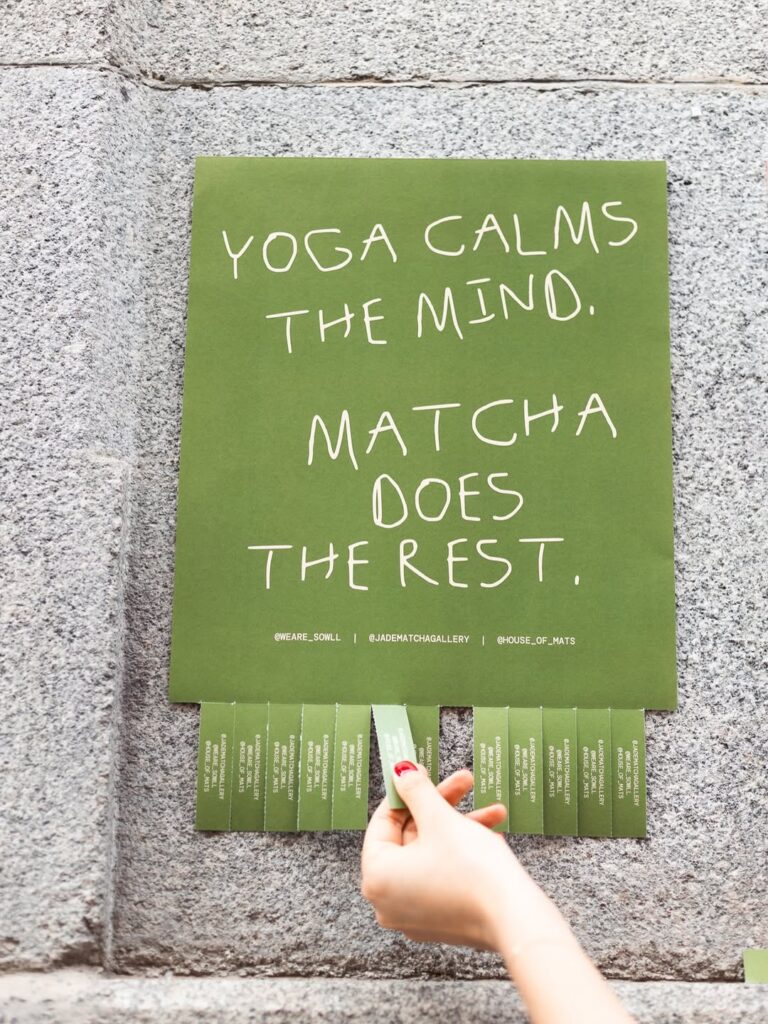 YOGA CALMS
THE MIND.
MATCHA
DOES
THE REST.
@WEARE_SOWLL | @JADEMATCHAGALLERY | @HOUSE_OF_MATS
@JADEMATCHAGALLERY
@WEARE_SOWLL
@HOUSE_OF_MATS
@JADEMATCHAGALLERY
@WEARE_SOWLL
@HOUSE_OF_MATS
@JADEMATCHAGALLERY
@WEARE_SOWLL
@HOUSE_OF_MATS
@JADEMATCHAGALLERY
@WEARE_SOWLL
@HOUSE_OF_MATS
@JADEMATCHAGALLERY
@WEARE_SOWLL
@HOUSE_OF_MATS
@JADEMATCHAGALLERY
@JADEMATCHAGALLERY
@WEARE_SOWLL
@HOUSE_OF_MATS
@JADEMATCHAGALLERY
@WEARE_SOWLL
@HOUSE_OF_MATS
@JADEMATCHAGALLERY
@WEARE_SOWLL
@HOUSE_OF_MATS
@JADEMATCHAGALLERY
@WEARE_SOWLL
@HOUSE_OF_MATS
@JADEMATCHAGALLERY
@WEARE_SOWLL
@HOUSE_OF_MATS